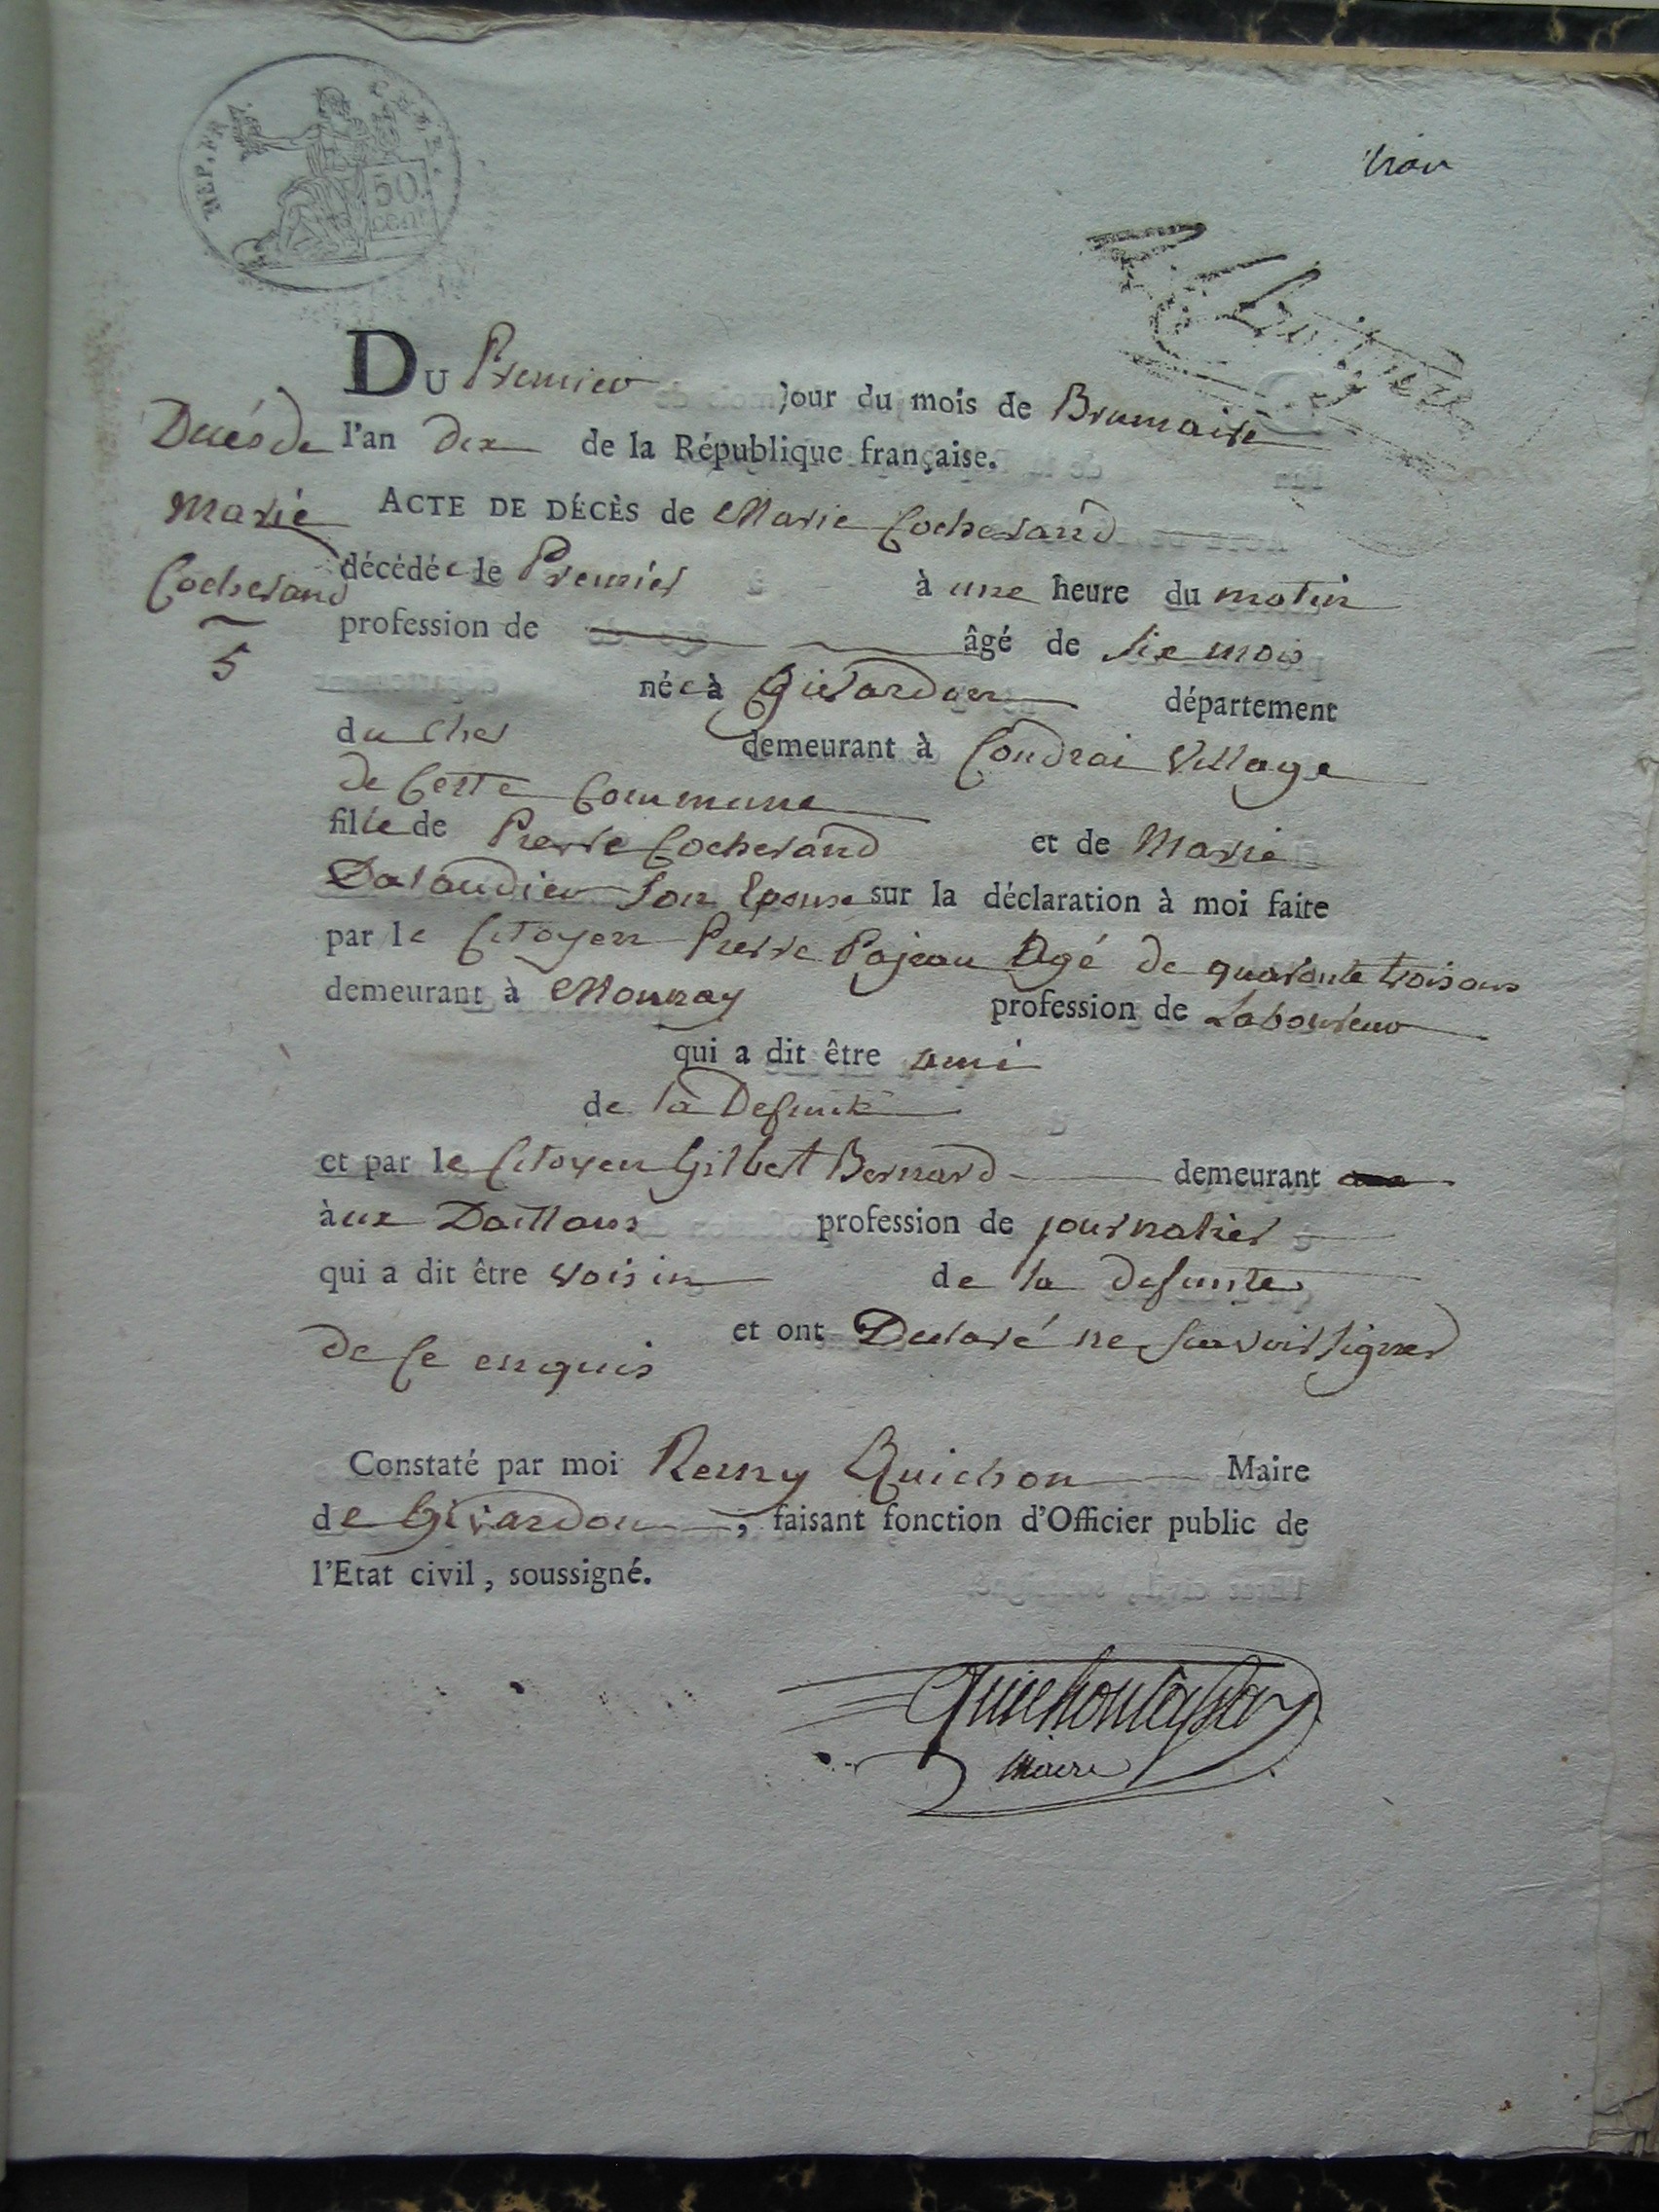 REP. FRA.
50
cent
trois
DU Premier jour du mois de Brumaire
Decés de
l'an dix de la République française.
Marie
Cocherand
5
ACTE DE DÉCÈS de Marie Cocherand
décédée le Premier à une heure du matin
profession de âgé de six mois
née à Givardon département
du Cher demeurant à Coudrai Village
de Cette Commune
fille de Pierre Cocherand et de Marie
Dalaudier Son Epouse sur la déclaration à moi faite
par le Citoyen Pierre Pajeau Agé de quarante trois ans
demeurant à Mournay profession de Laboureur
qui a dit être ami
de la Defunte
et par le Citoyen Gilbert Bernard demeurant
àux profession de journalier
qui a dit être voisin de la defunte
et ont Declaré ne scavoir signer
de Ce enquis
Constaté par moi Remy Quichon Maire
de Givardon, faisant fonction d'Officier public de
l'Etat civil, soussigné.
maire